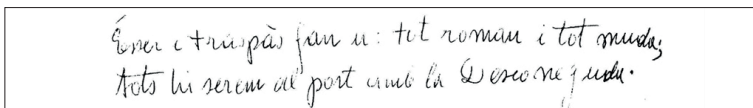 Ésser i traspàs fan u: tot roman i tot muda;
tots hi serem al port amb la Desconeguda.